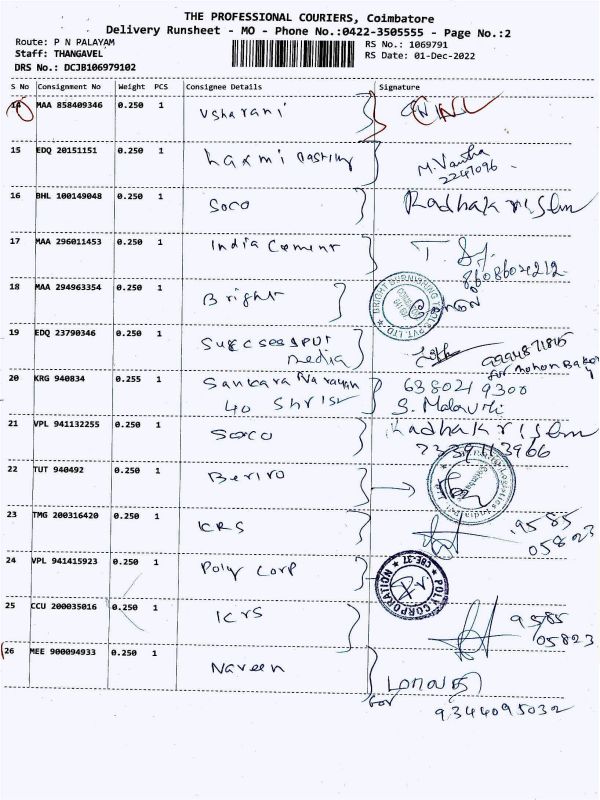 THE PROFESSIONAL COURIERS, Coimbatore
Delivery Runsheet - MO - Phone No.:0422-3505555 - Page No.:2
Route: P N PALAYAM RS No.: 1069791
Staff: THANGAVEL RS Date: 01-Dec-2022
DRS No.: DCJB106979102
S No Consignment No Weight PCS Consignee Details Signature
14 MAA 858409346 0.250 1 Vsharani
15 EDQ 20151151 0.250 1 Laxmi M. Vantha
2247096
16 BHL 100149048 0.250 1 SOCO Radhakrishnn
17 MAA 296011453 0.250 1 India Cement T. Sf.
8608602212
18 MAA 294963354 0.250 1 Bright
19 EDQ 23790346 0.250 1 Successspot
media
for mohan Babu
20 KRG 940834 0.255 1 Sankara Narayan 638021 9300
40 Shrist S. Malavili
21 VPL 941132255 0.250 1 SOCO Radhakrishnn
7339113966
22 TUT 940492 0.250 1
23 TMG 200316420 0.250 1 KRS 9585
05823
24 VPL 941415923 0.250 1 Poly Corp POLY CORPORATION CBE-37
25 CCU 200035016 0.250 1 KRS 9585
05823
26 MEE 900094933 0.250 1 Naveen
for
9344095032